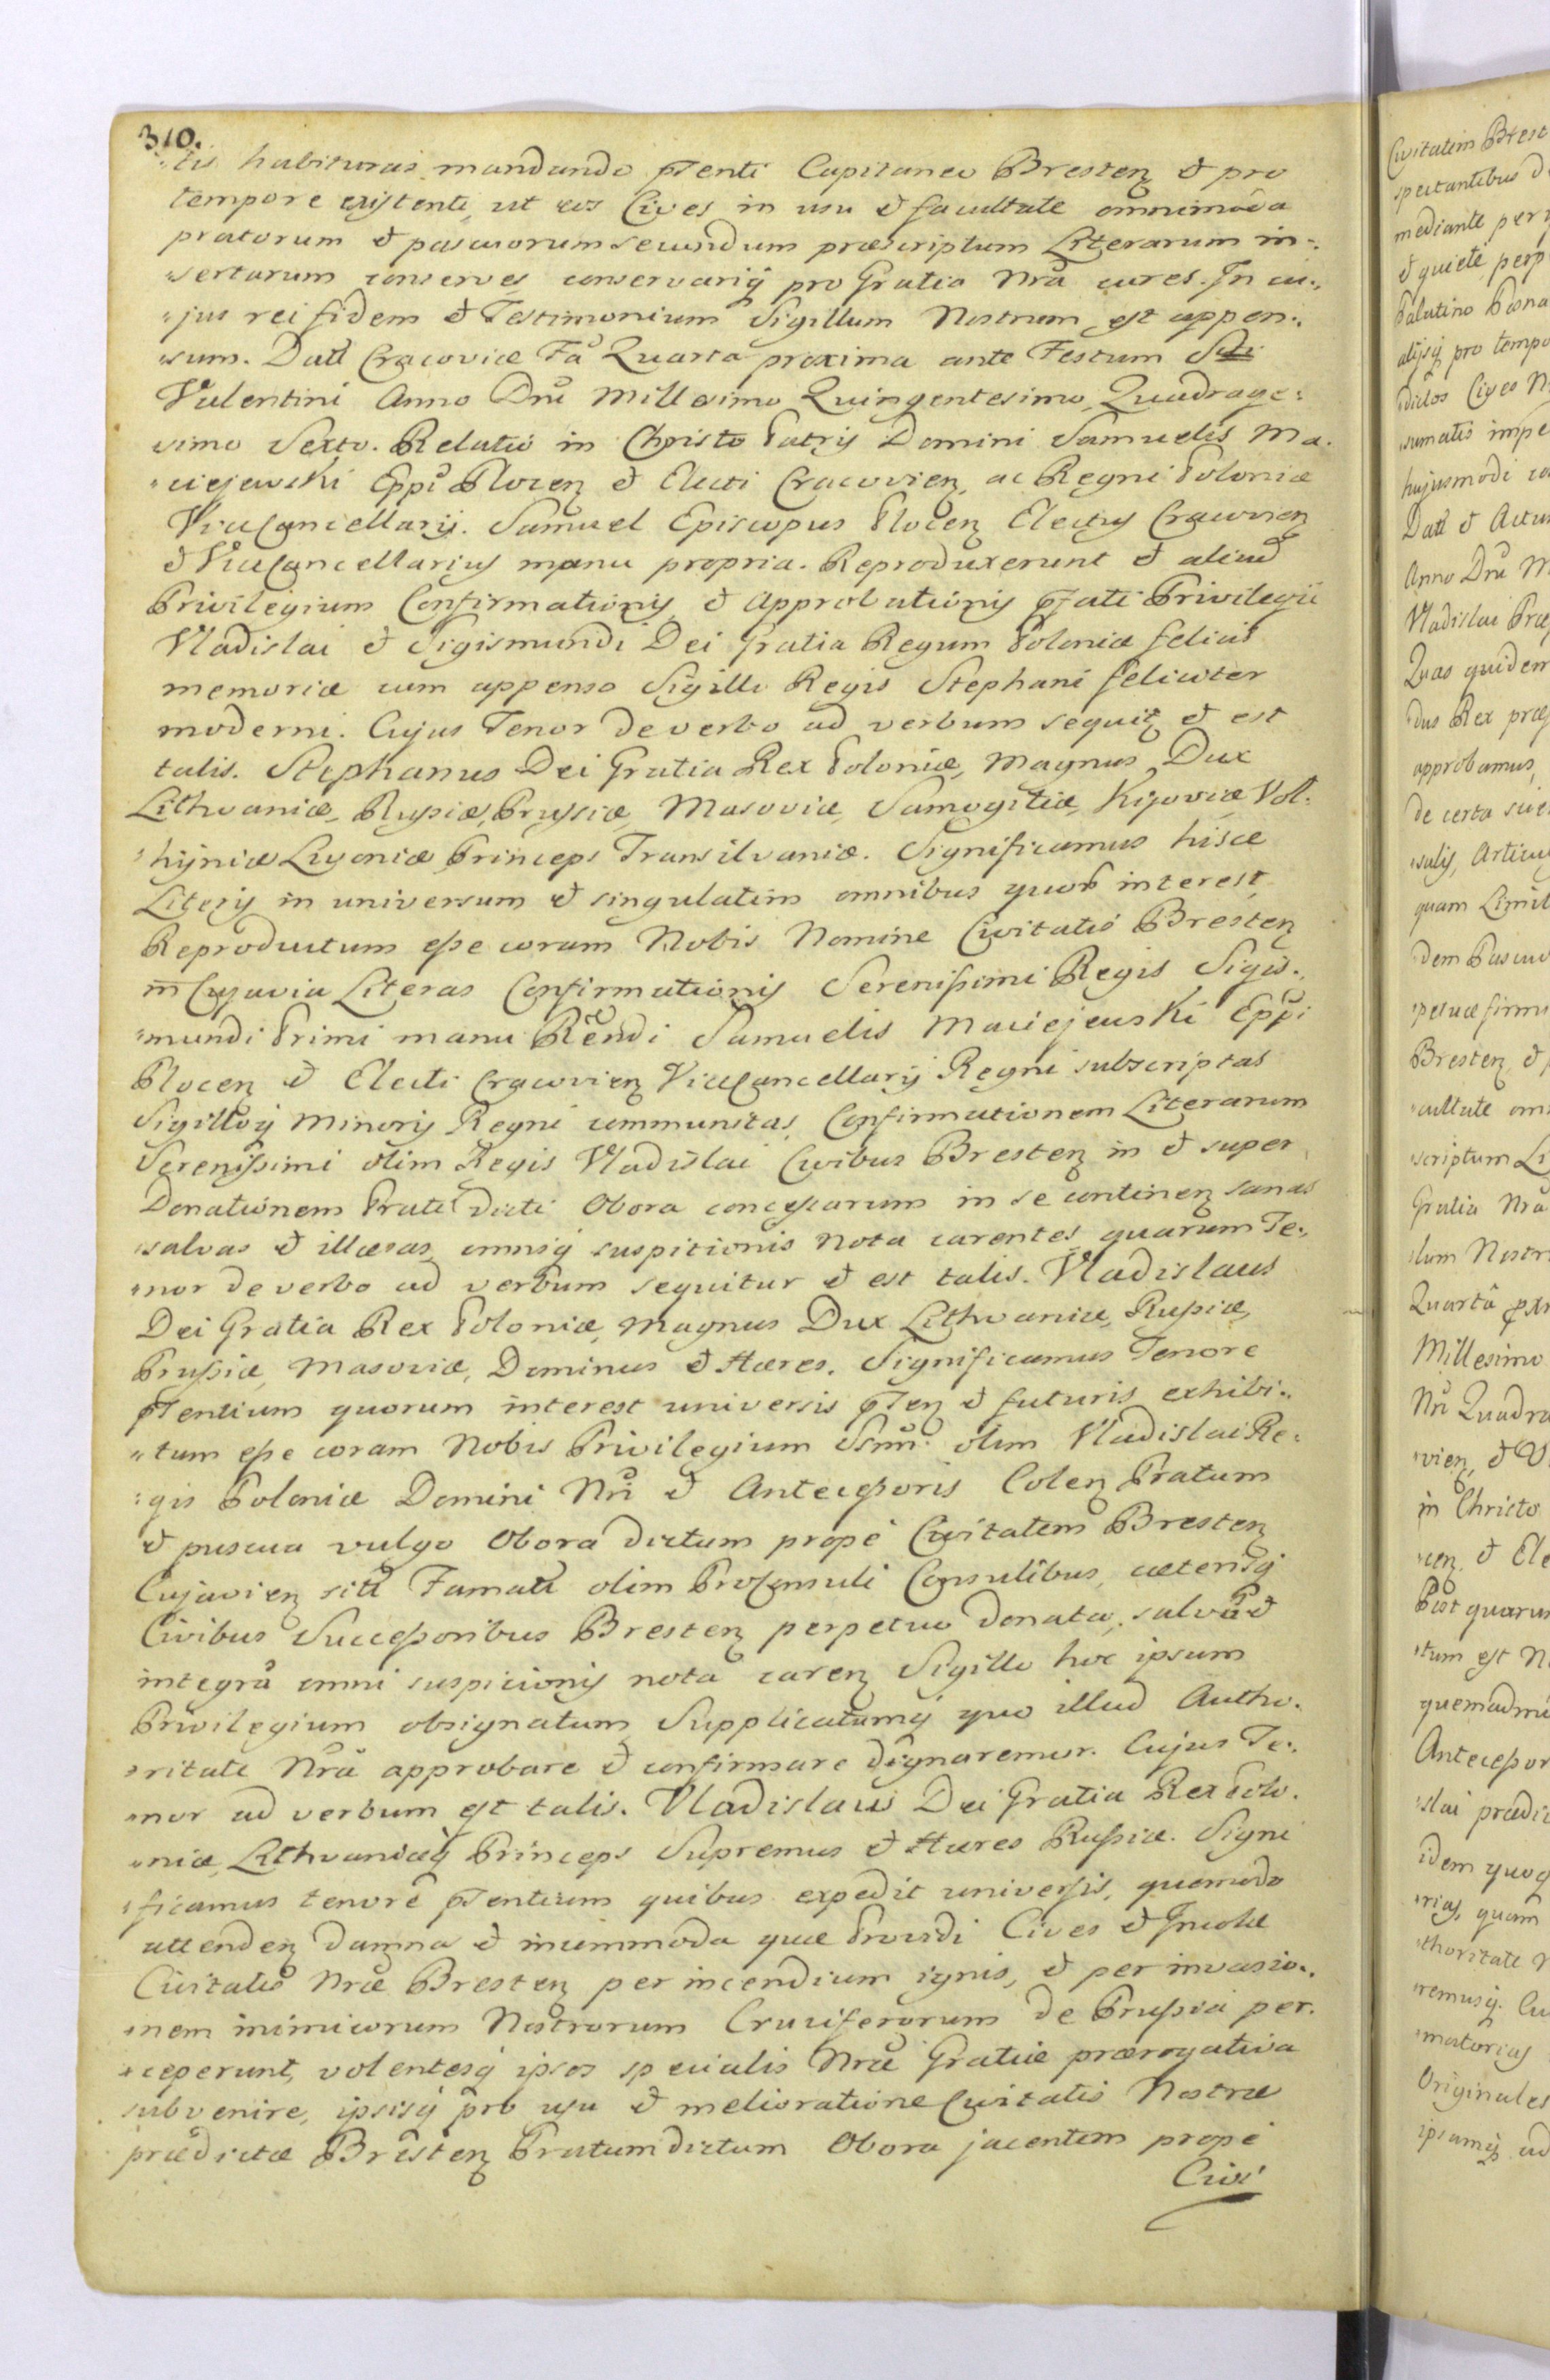 310.
"tis habituras mandando pTenti Capitaneo Bresten & pro
tempore existenti, ut eos Cives in usu & facultate omnimoda
pratorum & pascuorum secundum præscriptum Literarum in=
"sertarum conserves conservariq pro Gratia Nrâ cures. In cu=
"jus rei fidem & Testimonium Sigillum Nostrum est appen=
"sum. Datt Cracoviæ Fâ Quarta proxima ante Festum Sti
Valentini Anno Dni Millesimo Quingentesimo, Quadrage=
simo Sexto. Relatio in Christo Patris Domini Samuelis Ma=
"ciejewski Eppi Plocen & Electi Cracovien, ac Regni Poloniæ
ViceCancellarij. Samuel Episcopus Plocen Electus Cracovien
& ViceCancellarius manu propria. Reproduxerunt & aliud
Privilegium Confirmationis & Approbationis pTati Privilegii
Vladislai & Sigismundi Dei Gratia Regum Poloniæ felicis
memoriæ cum appenso Sigillo Regis Stephani feliciter
moderni. Cujus Tenor de verbo ad verbum sequit & est
talis. Stephanus Dei Gratia Rex Poloniæ, Magnus Dux
Lithvaniæ, Russiæ, Prussiæ, Masoviæ, Samogitiæ, Kijoviæ Vol=
"hijniæ Livoniæ Princeps Transilvaniæ. Significamus hisce
Literis in universum & singulatim omnibus quorũ interest
Reproductum esse coram Nobis Nomine Civitatis Bresten
in Cujavia Literas Confirmationis Serenissimi Regis Sigis=
"mundi Primi manu Rendi Samuelis Maciejewski Eppi
Plocen & Electi Cracovien ViceCancellarij Regni subscriptas
Sigilloq Minoris Regni communitas, Confirmationem Literarum
Serenissimi olim Regis Vladislai Civibus Bresten in & super
Donationem Prati dicti Obora concessarum in se continen sanas
salvas & illæsas omniq suspitionis nota carentes quarum Te=
"nor de verbo ad verbum sequitur & est talis. Vladislaus
Dei Gratia Rex Poloniæ, Magnus Dux Lithvaniæ, Russiæ,
Prussiæ, Masoviæ, Dominus & Hæres. Significamus Tenore
pTentium quorum interest universis pTen & futuris, exhibi=
"tum esse coram Nobis Privilegium Ssmi olim Vladislai Re=
"gis Poloniæ Domini Nri & Antecessoris Colen Pratum
& pascua vulgo Obora dictum propè Civitatem Bresten
Cujavien sitt Famatt olim ProConsuli Consulibus, cæterisq
Civibus Successoribus Bresten perpetuo donata, salvũ &
integrũ omni suspicionis nota caren Sigillo hoc ipsum
Privilegium obsignatum, Supplicatumq quo illud Autho=
"ritate Nrâ approbare & confirmare dignaremur. Cujus Te=
"nor ad verbum est talis. Vladislaus Dei Gratia Rex Polo=
"niæ, Lithvaniæq Princeps Supremus & Hæres Russiæ. Signi
"ficamus tenore pTentium quibus expedit universis, quomodo
attenden damna & incommoda quæ Providi Cives & Incolæ
Civitatis Nræ Bresten per incendium ignis, & per invasio=
"nem inimicorum Nostrorum Cruciferorum de Prussia per=
"ceperunt, volentesq ipsos specialis Nræ Gratiæ prærogativa
subvenire, ipsisq pro usu & melioratione Civitatis Nostræ
prædictæ Bresten Pratum dictum Obora jacentem propè
Civi
Civitatem Brest
spectantibus
mediante per
& quiete, perp
Palatino
alijsq pro tempo
dictos Cives N
hujusmodi
Datt & Actum
Anno Dni M
Vladislai Præ
Quas quidem
"dus Rex præ
approbamus,
de certa
quam Limit
"dem Pascu
"petuæ firmi
Bresten, &
"cultate om
"scriptum Li
Gratia Nrâ
"lum Nostr
Quarta
Millesimo
Nri Quadra
"vien, & V
in Christo
"cen, & Ele
Post quarum
"tum est N
quemadmo
Antecessor
"slai prædic
idem quoq
"rias, quam
"thoritate N
"remusq. Cu
"matorias
Originales
ipsamq ad